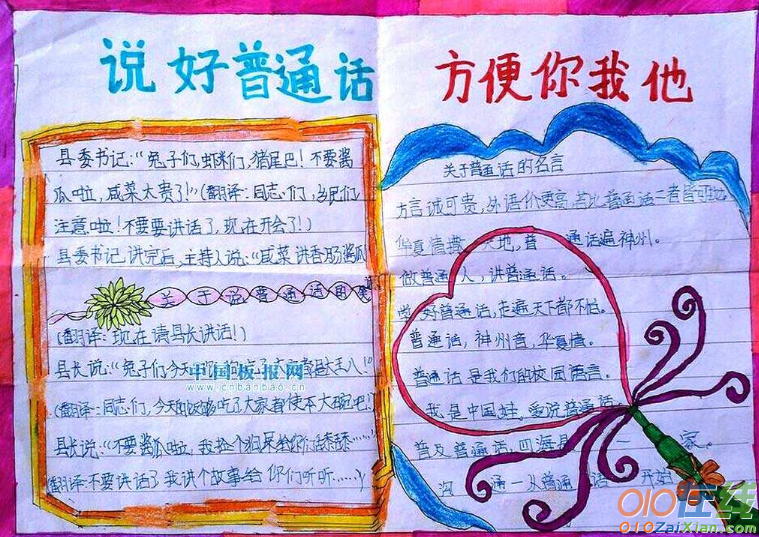 说好普通话 方便你我他
县委书记:“兔子们,虾米们,猪尾巴!不要酱
瓜啦,咸菜太贵了!”(翻译:同志们,乡民们
注意啦!不要讲话了,现在开会了!)
县委书记讲完后,主持人说:“咸菜讲香肠酱瓜
关于说普通话的笑
(翻译:现在请县长讲话!)
县长说:“兔子们,今天的 大家 大王八!”
(翻译:同志们,今天的饭够吃了大家 使不大碗吧!
县长说:“不要酱瓜啦,我捡个狗屎给你们舔舔……”
(翻译:不要讲话了我讲个故事给你们听听……)
关于普通话的名言
方言诚可贵,外语价更高,若比普通话二者皆可抛
华夏情 天地,普 通话遍神州。
做普通人,讲普通话。
好普通话,走遍天下都不怕。
普通话,神州音,华夏情。
普通话是我们的校园语言。
我是中国娃,爱说普通话
普及普通话,四海 一家。
沟 通—从普通 话 开始
中国板报网
www.cnbanbao.cn
010在线
010ZaiXian.com